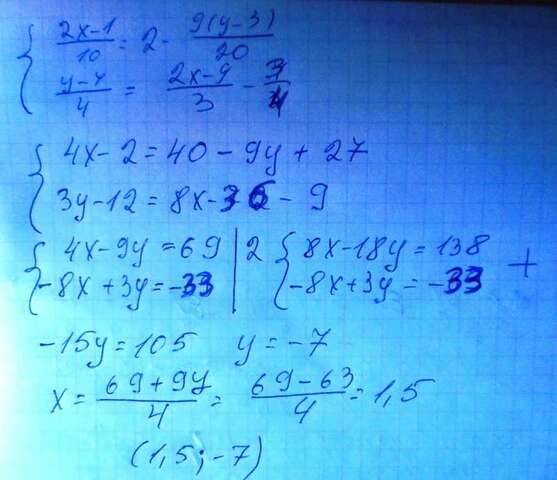 { (2x-1)/10 = 2 - 9(y-3)/20
(y-4)/4 = (2x-9)/3 - 3/4
{ 4x - 2 = 40 - 9y + 27
3y - 12 = 8x - 36 - 9
{ 4x - 9y = 69 | 2 { 8x - 18y = 138
-8x + 3y = -33 | -8x + 3y = -33 +
-15y = 105 y = -7
x = (69+9y)/4 = (69-63)/4 = 1,5
(1,5; -7)